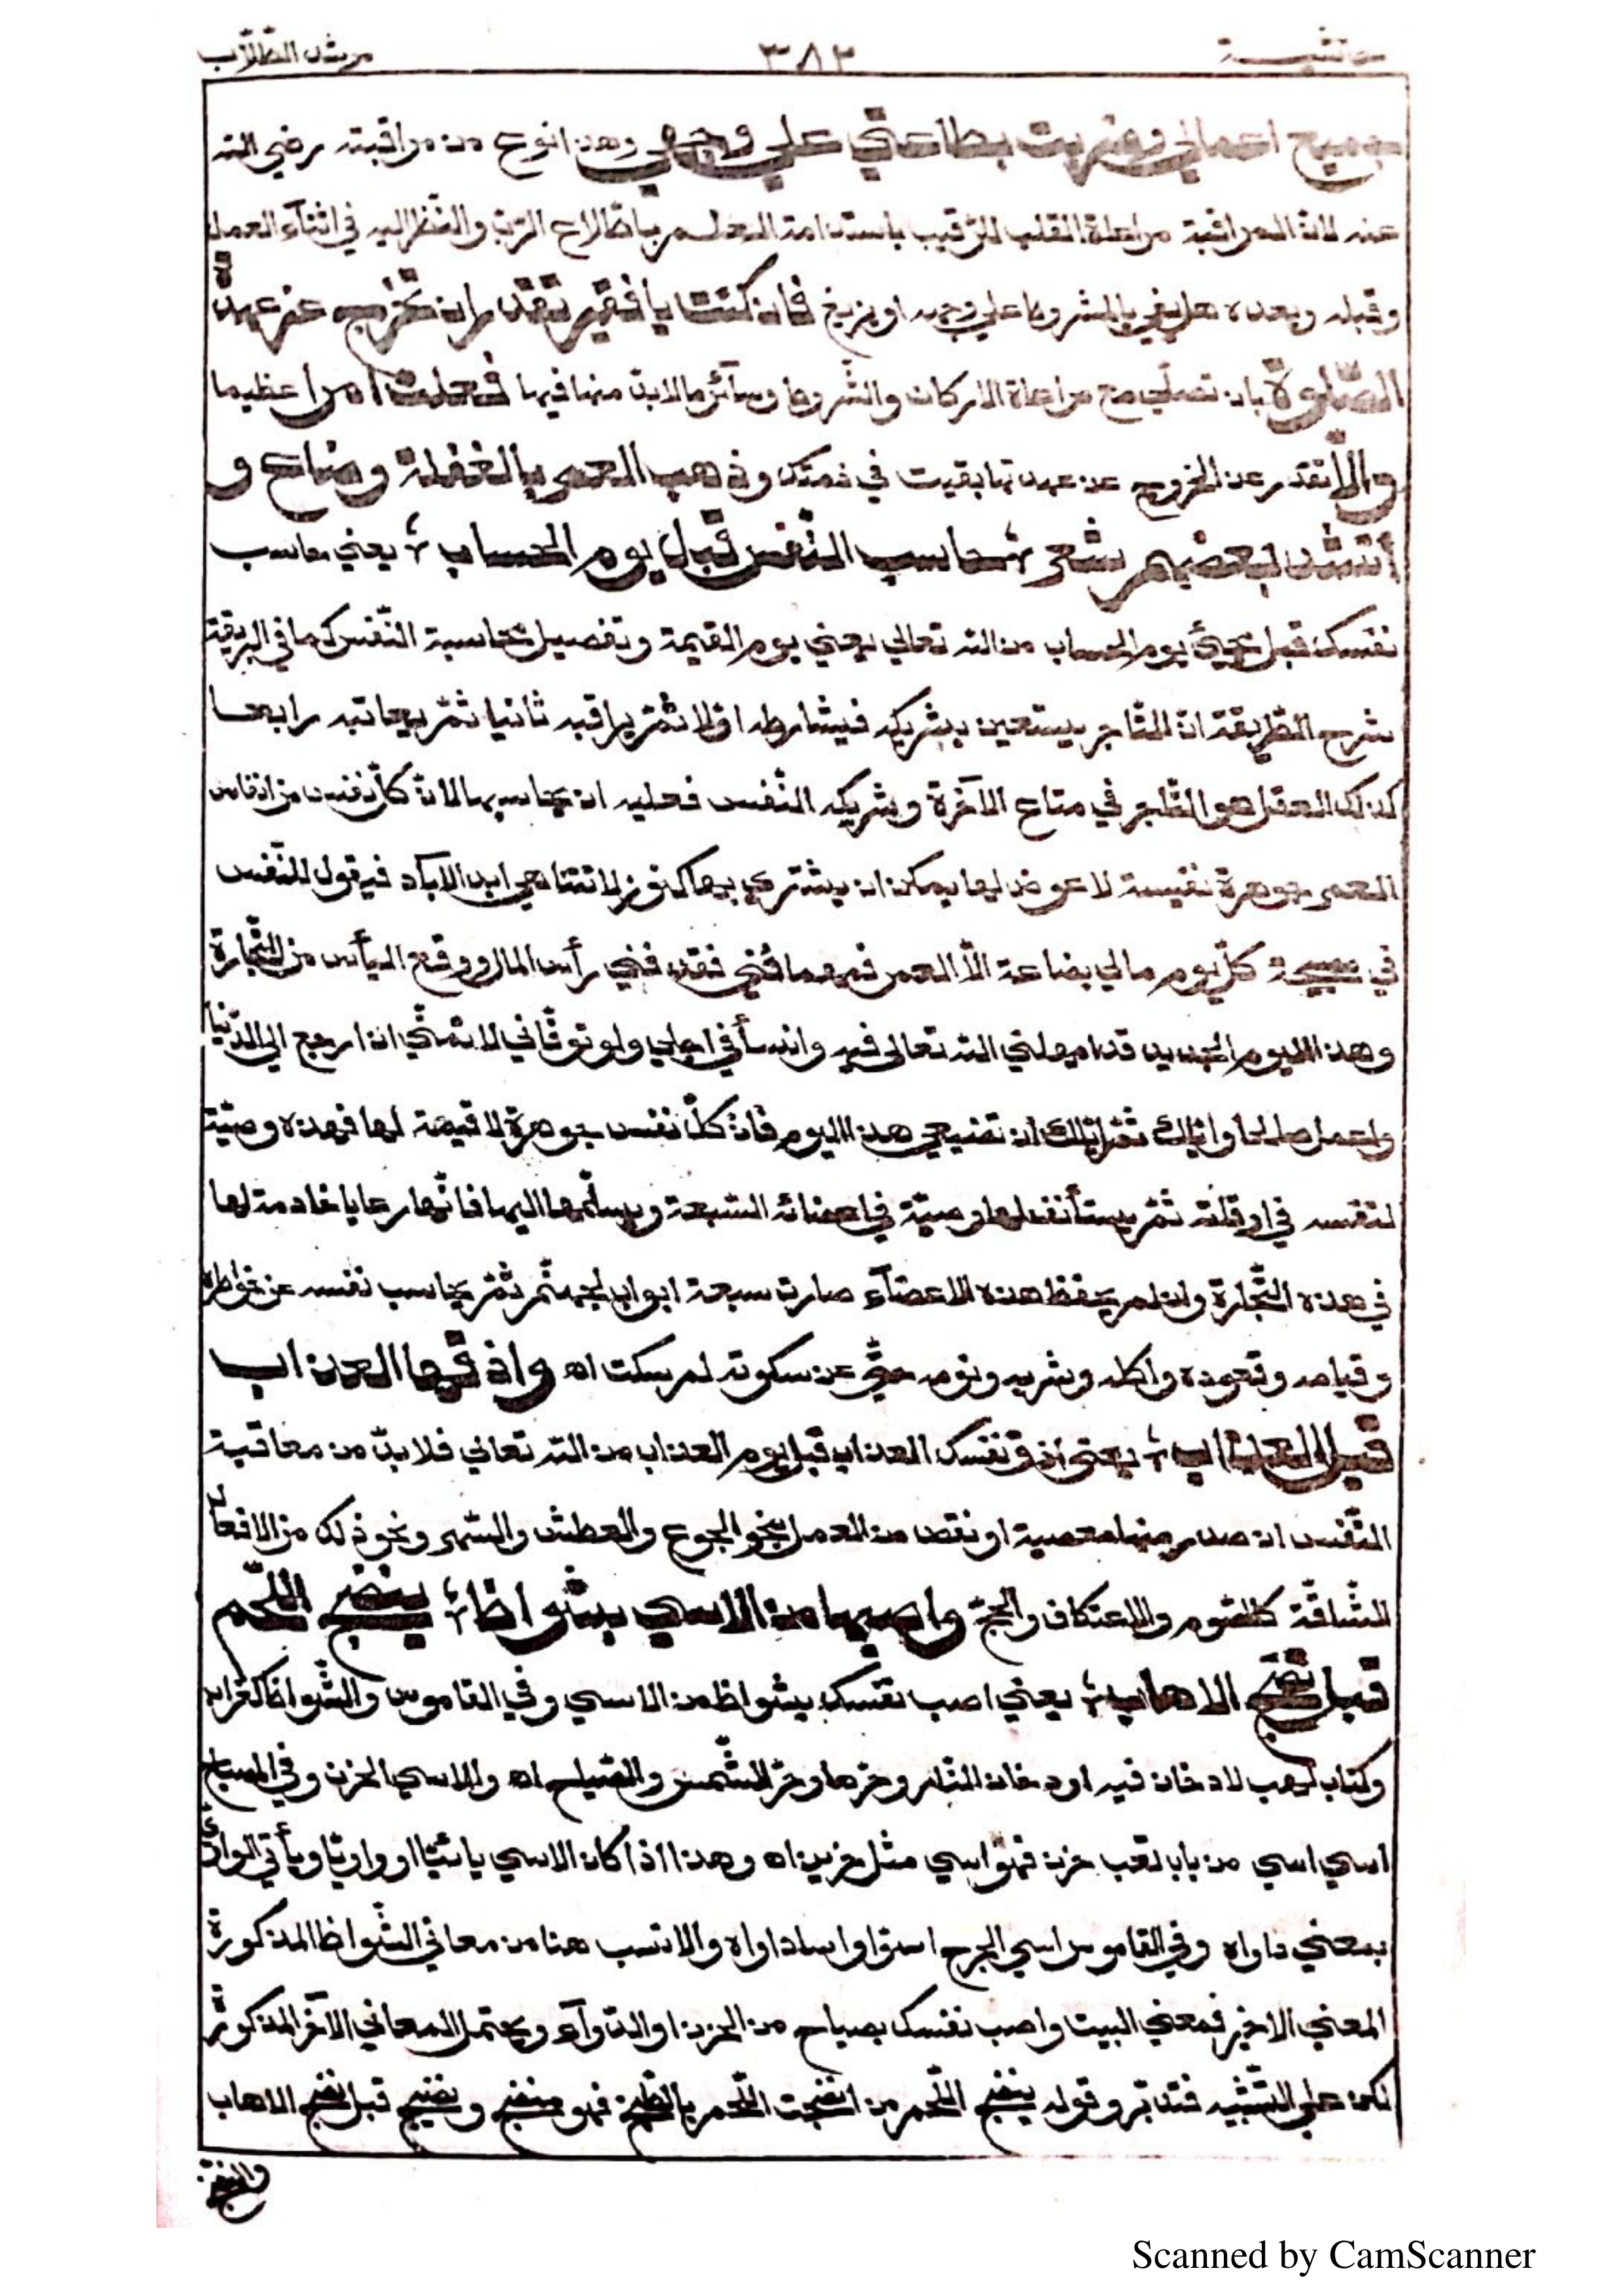 حاشية ٣٨٢ مرشد الطّلّاب
جميع اعمالي وضربت بطاعتي علي وجهي وهذا نوع من مراقبته رضي الله
عنه لانّ المراقبة مراعاة القلب للرّقيب باستدامة العلم باطّلاع الرّبّ والنّظر اليه في اثنآء العمل
وقبله وبعده هل يفي بالمشروط علي وجهه او يزيغ فان كنت يا فقير تقدر ان تخرج عن عهدة
الصّلوة بان تصلّي مع مراعاة الاركان والشّروط وسآئر ما لابدّ منها فيها فعلت امرا عظيما
والّا تقدر عن الخروج عن عهدتها بقيت في ذمتك وذهب العمر بالغفلة وضاع و
أنشد بعضهم شعر حاسب النّفس قبل يوم الحساب يعني حاسب
نفسك قبل مجيئ يوم الحساب من الله تعالي يعني يوم القيمة وتفصيل محاسبة النّفس كما في البريقة
شرح الطّريقة انّ التّاجر يستعين بشريكه فيشارطه اوّلا ثمّ يراقبه ثانيا ثمّ يعاتبه رابعا
كذلك العقل هو التّاجر في متاع الآخرة وشريكه النّفس فعليه ان يحاسبها لانّ كلّ نفس من انفاس
العمر جوهرة نفيسة لا عوض لها يمكن ان يشتري بها كنوز لا تتناهي ابد الآباد فيقول للنّفس
في صبيحة كلّ يوم مالي بضاعة الّا العمر فمهما فني فقد فني رأس المال ووقع اليأس من التّجارة
وهذا اليوم الجديد قد امهلني الله تعالي فيه وانسأ في اجلي ولو توفّاني لا تمنّي ان ارجع الي الدّنيا
واعمل صالحا وايّاك ثمّ ايّاك ان تضيعي هذا اليوم فانّ كلّ نفس جوهرة لا قيمة لها فهذه وصيّة
لنفسه في اوقاته ثمّ يستأنف لها وصيّة في اعضائه السّبعة ويسلّمها اليها فانّها رعايا خادمة لها
في هذه التّجارة وان لم يحفظ هذه الاعضآء صارت سبعة ابواب لجهنّم ثمّ يحاسب نفسه عن خواطره
وقيامه وقعوده واكله وشربه ونومه حتّي عن سكوته لم سكت اه واذقها العذاب
قبل العذاب يعني اذق نفسك العذاب قبل يوم العذاب من الله تعالي فلا بدّ من معاقبة
النّفس ان صدر منها معصية او نقص من العمل بنحو الجوع والعطش والسّهر ونحو ذلك من الافعال
الشّاقّة كالصّوم والاعتكاف والحجّ واصبها من الاسي بشواظ ينضج اللّحم
قبل نضج الاهاب يعني اصب نفسك بشواظ من الاسي وفي القاموس والشّواظ كغراب
وكتاب لهب لا دخان فيه او دخان النّار وحرّها وحرّ الشّمس والصّياح اه والاسي الحزن وفي المصباح
اسي اسي من باب تعب حزن فهو اسي مثل حزين اه وهذا اذا كان الاسي يائيّا او واويّا ويأتي الواويّ
بمعني داواه وفي القاموس اسي الجرح اسوا واسا داواه والانسب هنا من معاني الشّواظ المذكورة
المعني الاخير فمعني البيت واصب نفسك بصياح من الحزن او الدّوآء ويحتمل المعاني الآخر المذكورة
لكن علي التّشبيه فتدبّر وقوله ينضج اللّحم من انضجت اللّحم بالطّبخ فهو منضج ونضيج قبل نضج الاهاب